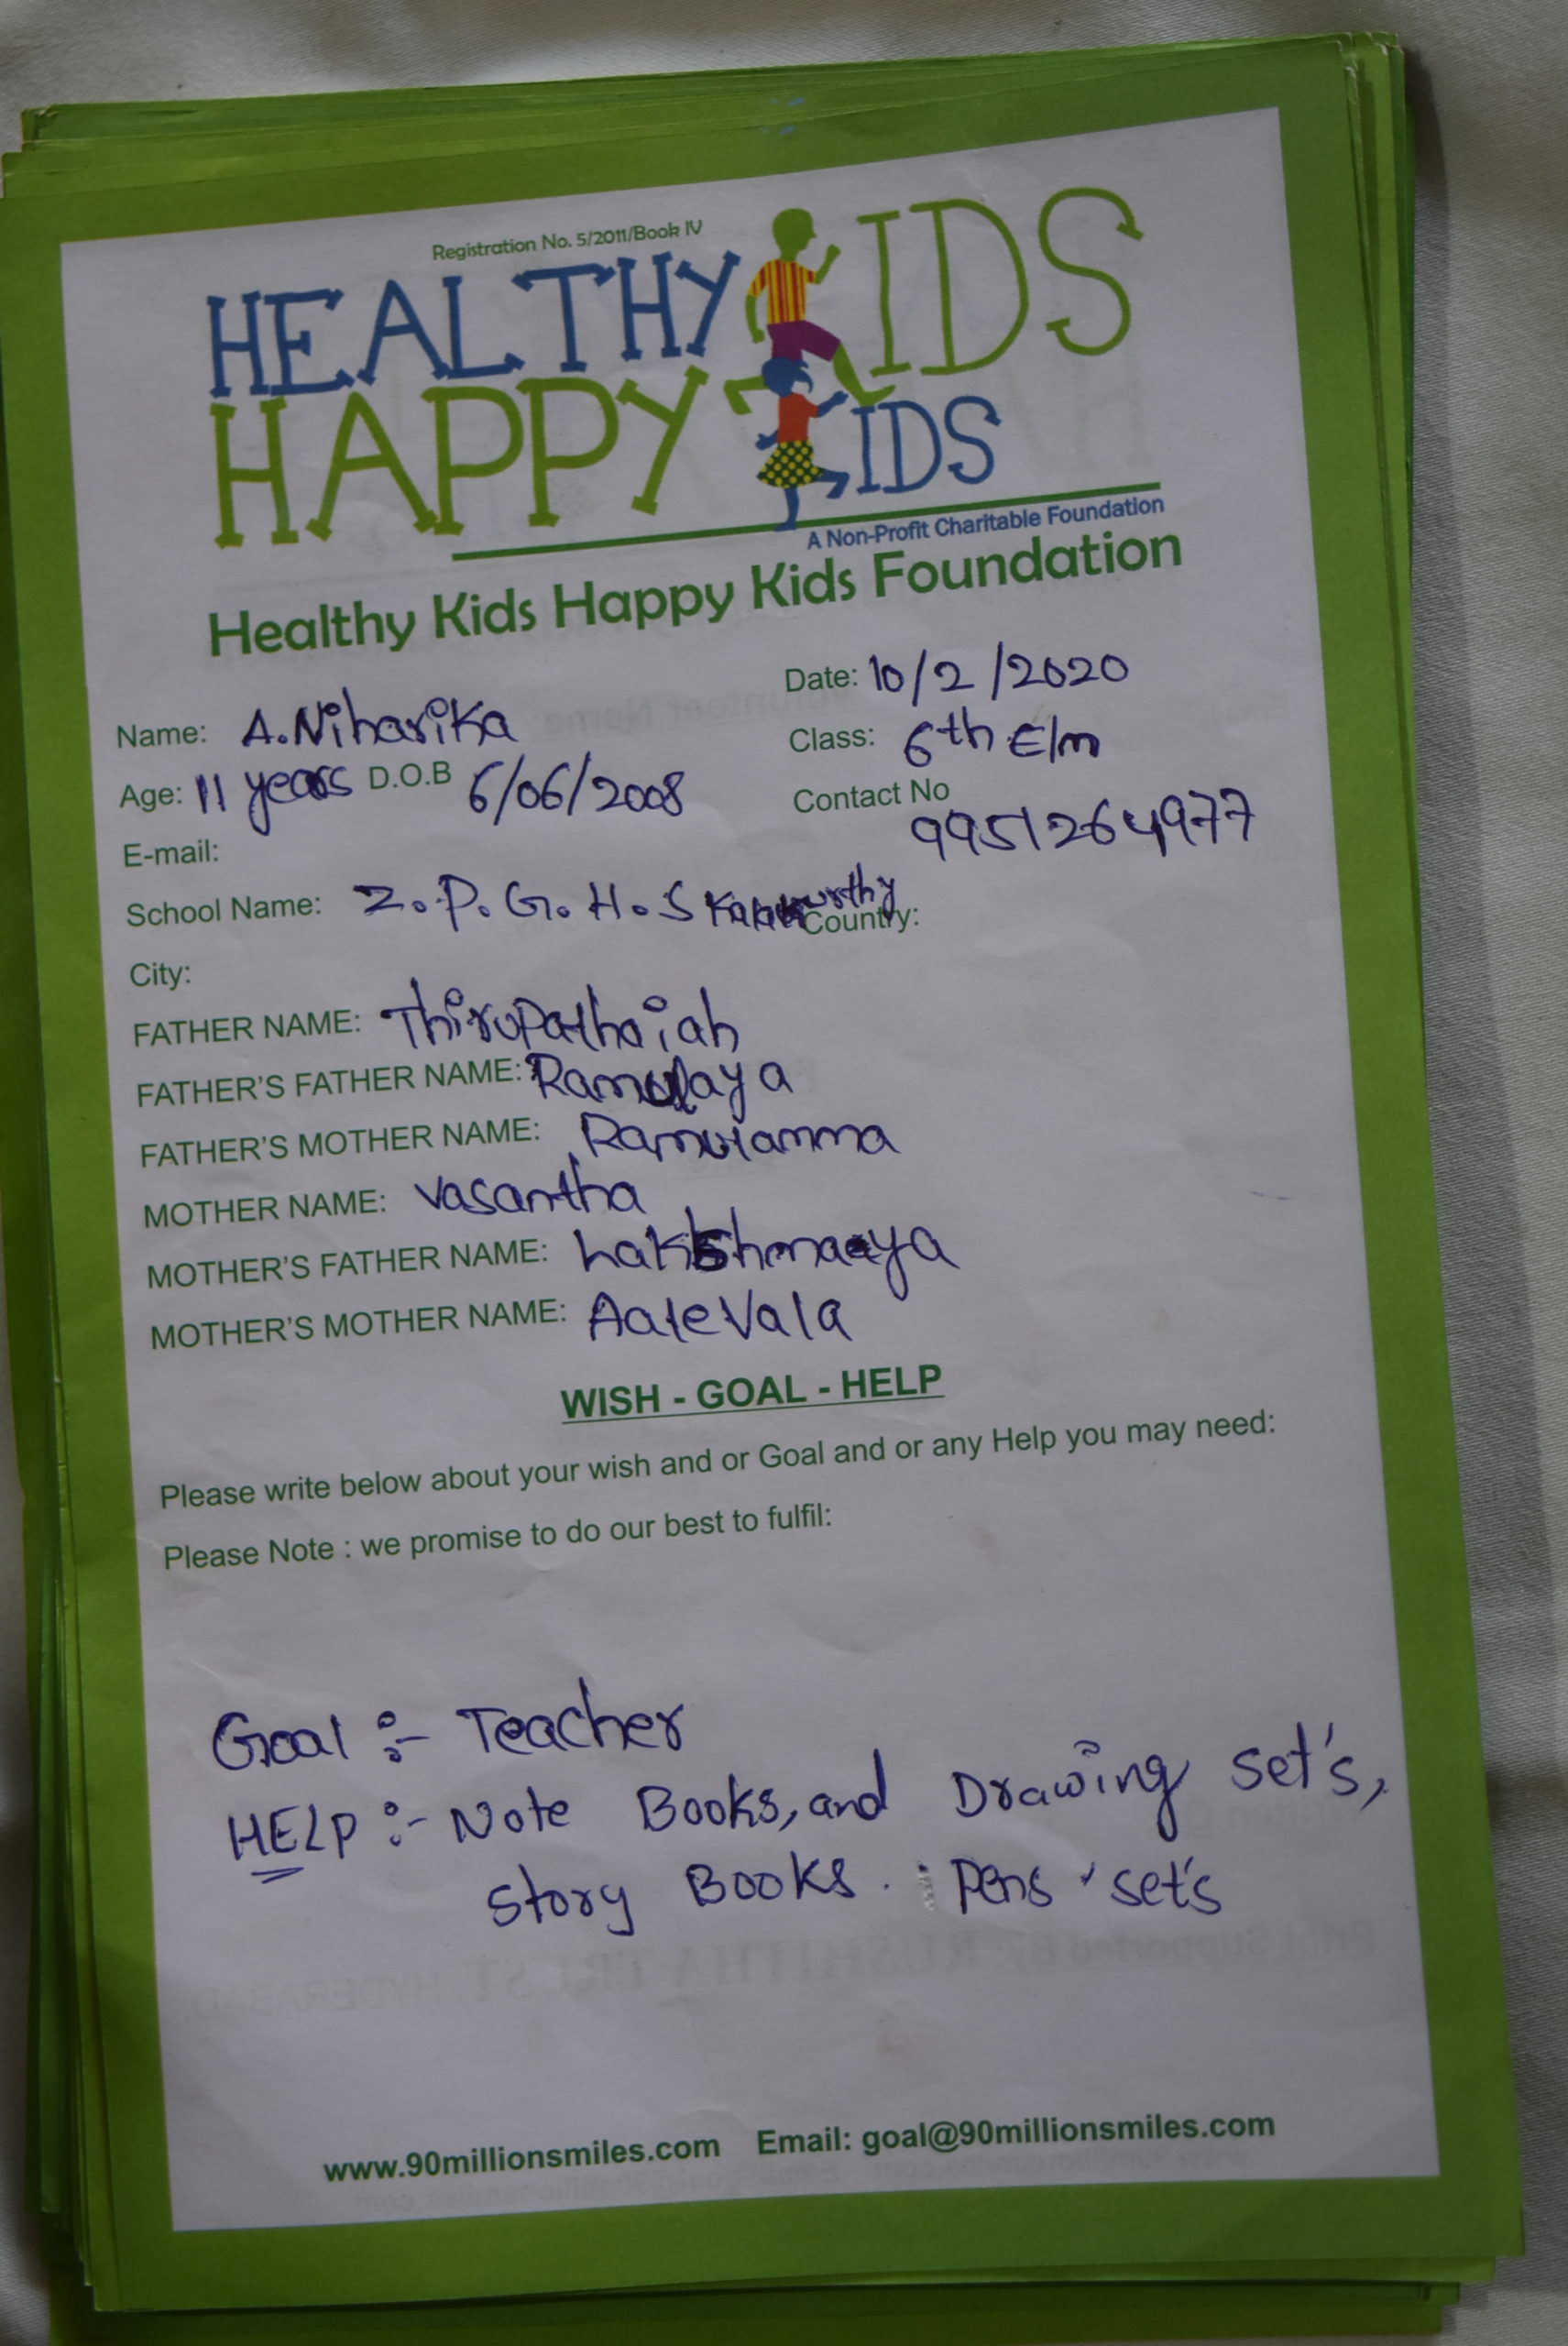 Registration No. 5/2011/Book IV
HEALTHY KIDS
HAPPY KIDS
A Non-Profit Charitable Foundation
Healthy Kids Happy Kids Foundation
Date: 10/2/2020
Name: A.Niharika
Class: 6th E/m
Age: 11 years D.O.B 6/06/2008
Contact No 9951264977
E-mail:
School Name: Z.P.G.H.S
Country:
City:
FATHER NAME: Thirupathaiah
FATHER'S FATHER NAME: Ramulaya
FATHER'S MOTHER NAME: Ramulamma
MOTHER NAME: Vasantha
MOTHER'S FATHER NAME: Lakshmaya
MOTHER'S MOTHER NAME: AaleVala
WISH - GOAL - HELP
Please write below about your wish and or Goal and or any Help you may need:
Please Note : we promise to do our best to fulfil:
Goal :- Teacher
HELP :- Note Books, and Drawing set's,
Story Books. Pens set's
www.90millionsmiles.com Email: goal@90millionsmiles.com